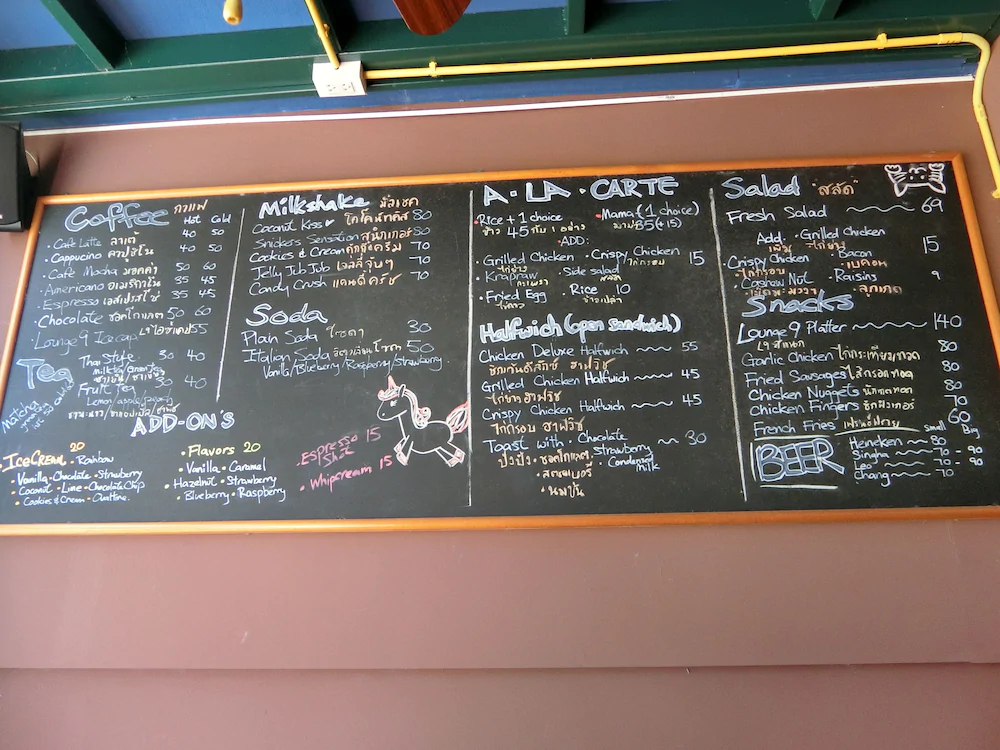 Coffee กาแฟ
Hot Cold
• Cafe Latte ลาเต้ 40 50
• Cappucino คาปูชิโน 40 50
• Cafe Mocha มอคค่า 50 60
• Americano อเมริกาโน 35 45
• Espresso เอสเปรสโซ่ 35 45
• Chocolate ชอคโกแลต 50 60
• Lounge 9 Icecap 55
Tea
Thai Style 30 40
Fruit Tea 30 40
Matcha
ADD-ON'S
• ICECREAM 20 • Rainbow
• Vanilla • Chocolate • Strawberry
• Coconut • Lime • Chocolate Chip
• Cookies & Cream • Ovaltine
• Flavors 20
• Vanilla • Caramel
• Hazelnut • Strawberry
• Blueberry • Raspberry
• Espresso 15
Shot
• Whipcream 15
Milkshake มิลเชค
Coconut Kiss โคโค่นัทคิส 80
Snickers Sensation 80
Cookies & Cream คุ้กกี้ครีม 70
Jelly Jub Jub เจลลี่จุ๊บๆ 70
Candy Crush แคนดี้ครัช 70
Soda
Plain Soda โซดา 30
Italian Soda อิตาเลี่ยนโซดา 50
Vanilla/Blueberry/Raspberry/Strawberry
A • LA • CARTE
• Rice + 1 choice
ข้าว 45 กับ 1 อย่าง
• Mama (1 choice)
มาม่า 35 (+15)
ADD:
• Grilled Chicken • Crispy Chicken 15
ไก่ย่าง ไก่กรอบ
• Krapraw • Side salad
กะเพรา
• Fried Egg • Rice 10
ไข่ดาว ข้าวเปล่า
Halfwich (open sandwich)
Chicken Deluxe Halfwich 55
ชิกเก้นดีลักซ์ ฮาฟวิช
Grilled Chicken Halfwich 45
ไก่ย่าง ฮาฟวิช
Crispy Chicken Halfwich 45
ไก่กรอบ ฮาฟวิช
Toast with • Chocolate 30
• Strawberry
• Condensed
Milk
ปังปิ้ง • ชอคโกแลต
• สตรอเบอรี่
• นมข้น
Salad "สลัด"
Fresh Salad 69
Add: • Grilled Chicken
เพิ่ม ไก่ย่าง
• Crispy Chicken • Bacon 15
ไก่กรอบ เบคอน
• Cashew Nut • Raisins 9
เม็ดมะม่วง ลูกเกด
Snacks
Lounge 9 Platter 140
Garlic Chicken ไก่กระเทียมทอด 80
Fried Sausages ไส้กรอกทอด 80
Chicken Nuggets นักเกตทอด 80
Chicken Fingers ชิกฟิงเกอร์ 70
French Fries เฟรนช์ฟราย 60
Small Big
BEER
Heineken 80
Singha 70 - 90
Leo 70 - 90
Chang 70